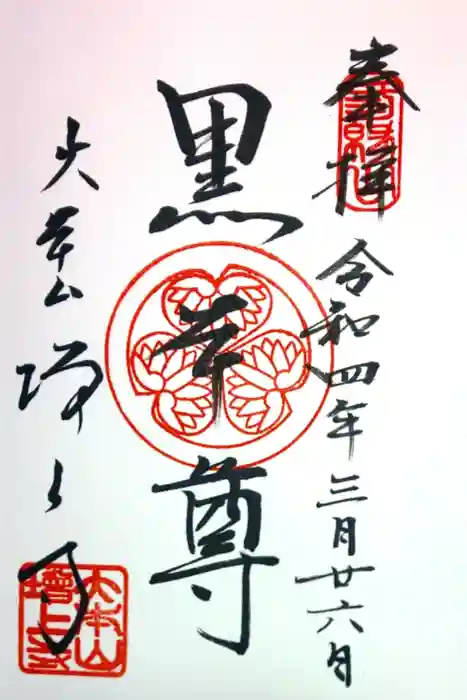 奉拝
令和四年三月廿六日
黒本尊
大本山増上寺
大本山
増上寺